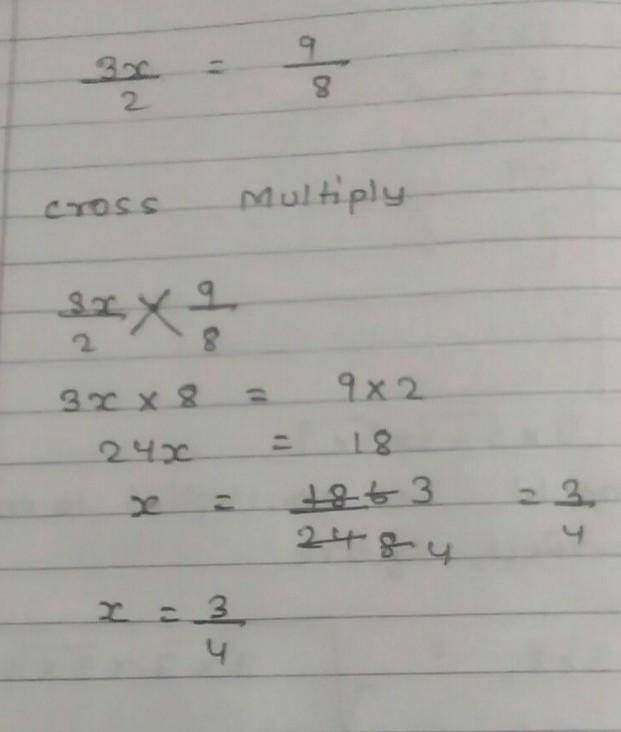 3x/2 = 9/8
cross multiply
3x/2 × 9/8
3x × 8 = 9 × 2
24x = 18
x = 18 6 3 / 24 8 4 = 3/4
x = 3/4